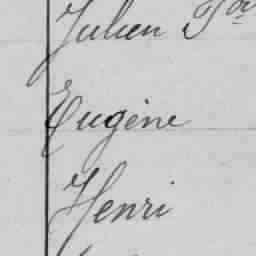 Julien
Eugène
Henri